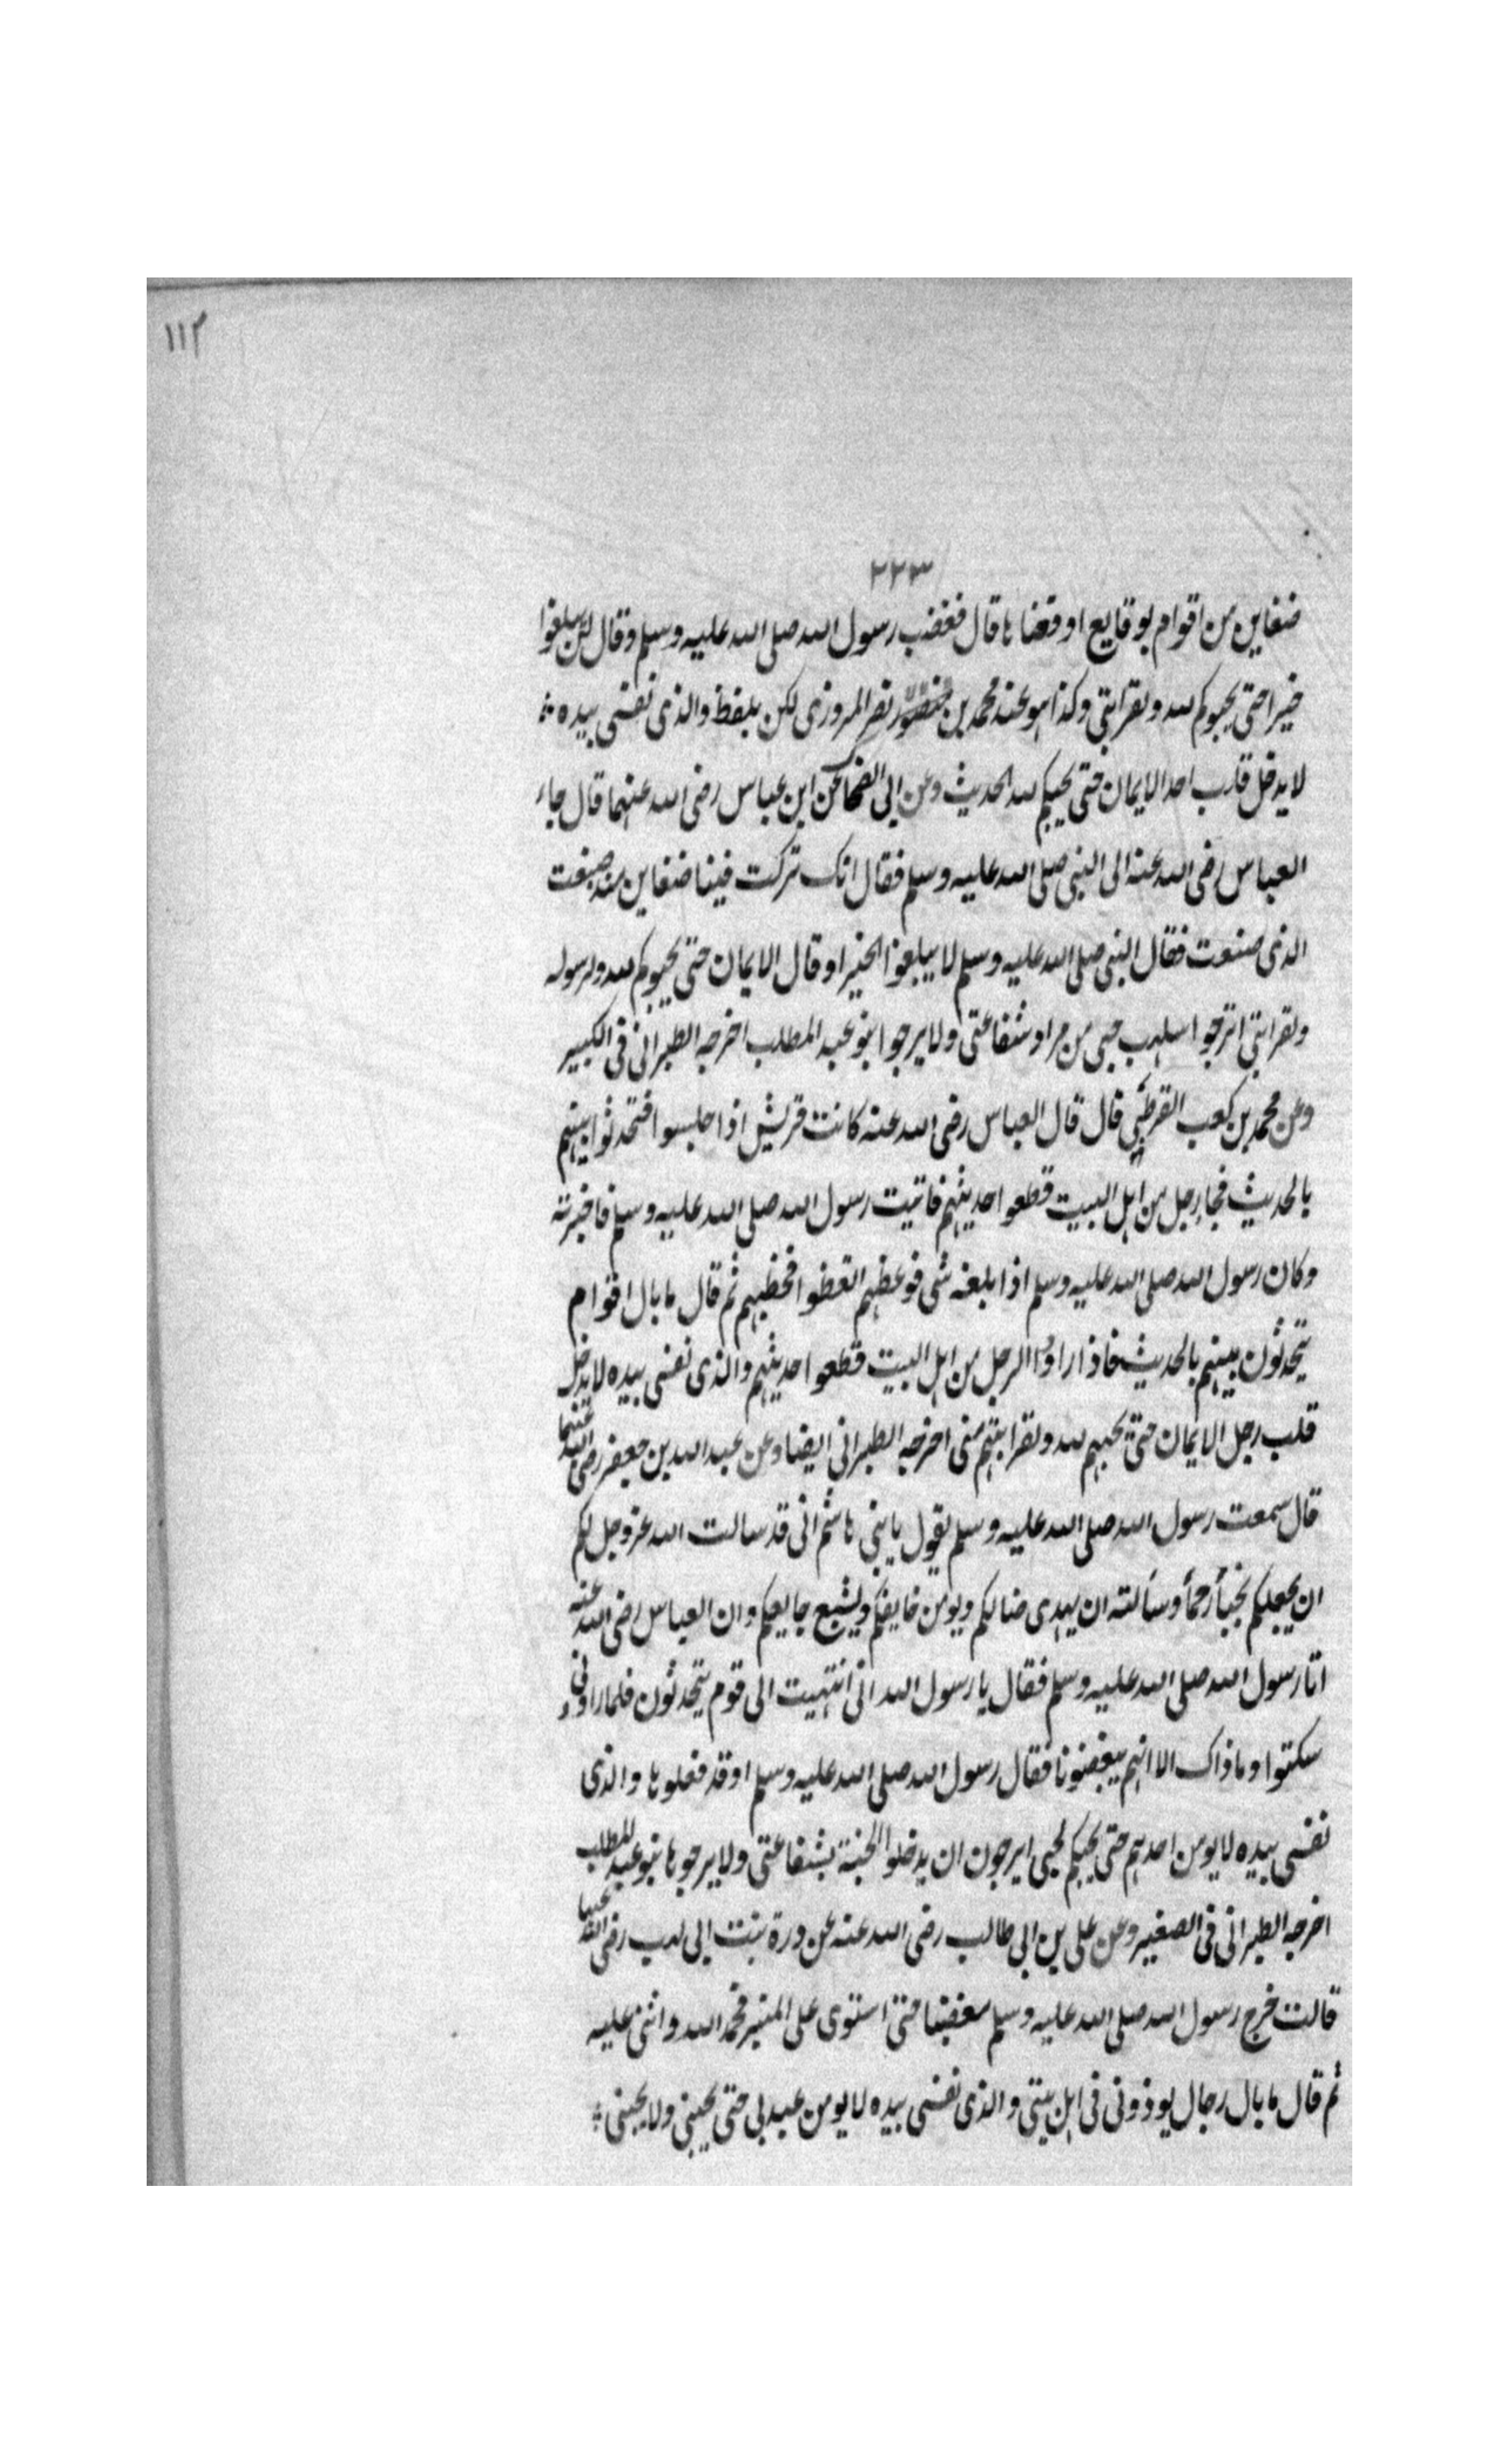 ١١٢
٢٢٣
ضغاين من اقوام بوقايع اوقعنا ها قال فغضب رسول الله صلى الله عليه وسلم وقال لن يبلغوا
خيرا حتى يحبوكم لله ولقرابتى وكذا هو عند محمد بن نصر المروزى لكن بلفظ والذى نفسى بيده
لا يدخل قلب احد الايمان حتى يحبكم لله الحديث وعن ابى الضحاك عن ابن عباس رضى الله عنهما قال جاء
العباس رضى الله عنه الى النبى صلى الله عليه وسلم فقال انك تركت فينا ضغاين منذ صنعت
الذى صنعت فقال النبى صلى الله عليه وسلم لا يبلغوا الخير او قال الايمان حتى يحبوكم لله ولرسوله
ولقرابتى اترجوا سلهب حى من مراد شفاعتى ولا يرجوا بنو عبد المطلب اخرجه الطبرانى فى الكبير
وعن محمد بن كعب القرظى قال قال العباس رضى الله عنه كانت قريش اذا جلسوا فتحدثوا بينهم
بالحديث فجا رجل من اهل البيت قطعوا حديثهم فاتيت رسول الله صلى الله عليه وسلم فاخبرته
وكان رسول الله صلى الله عليه وسلم اذا بلغه شى فوعظهم اتعظوا فخطبهم ثم قال ما بال اقوام
يتحدثون بينهم بالحديث فاذا راوا الرجل من اهل البيت قطعوا حديثهم والذى نفسى بيده لا يدخل
قلب رجل الايمان حتى يحبهم لله ولقرابتهم منى اخرجه الطبرانى ايضا وعن عبد الله بن جعفر رضى الله عنهما
قال سمعت رسول الله صلى الله عليه وسلم يقول يا بنى هاشم انى قد سالت الله عز وجل لكم
ان يجعلكم نجبأ رحمأ وسألته ان يهدى ضالكم ويومن خايفكم ويشبع جايعكم وان العباس رضى الله عنه
اتا رسول الله صلى الله عليه وسلم فقال يا رسول الله انى انتهيت الى قوم يتحدثون فلما راونى
سكتوا وما ذاك الا انهم يبغضونا فقال رسول الله صلى الله عليه وسلم اوقد فعلوها والذى
نفسى بيده لا يومن احدهم حتى يحبكم لحبى ايرجون ان يدخلوا الجنة بشفاعتى ولا يرجوها بنو عبد المطلب
اخرجه الطبرانى فى الصغير وعن على بن ابى طالب رضى الله عنه عن درة بنت ابى لهب رضى الله عنها
قالت خرج رسول الله صلى الله عليه وسلم مغضبا حتى استوى على المنبر فحمد الله واثنى عليه
ثم قال ما بال رجال يوذونى فى اهل بيتى والذى نفسى بيده لا يومن عبد بى حتى يحبنى ولا يحبنى